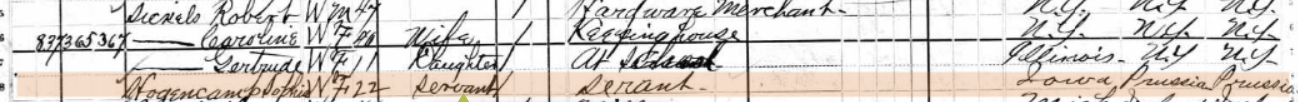 Sickels Robert W M 47 1 Hardware Merchant N.Y. N.Y. N.Y.
837 365 367 — Caroline W F 40 Wife 1 Keeping house N.Y. N.Y. N.Y.
— Gertrude W F 11 Daughter At School Illinois N.Y. N.Y.
Hogencamp Sophie W F 22 Servant Serant Iowa Prussia Prussia